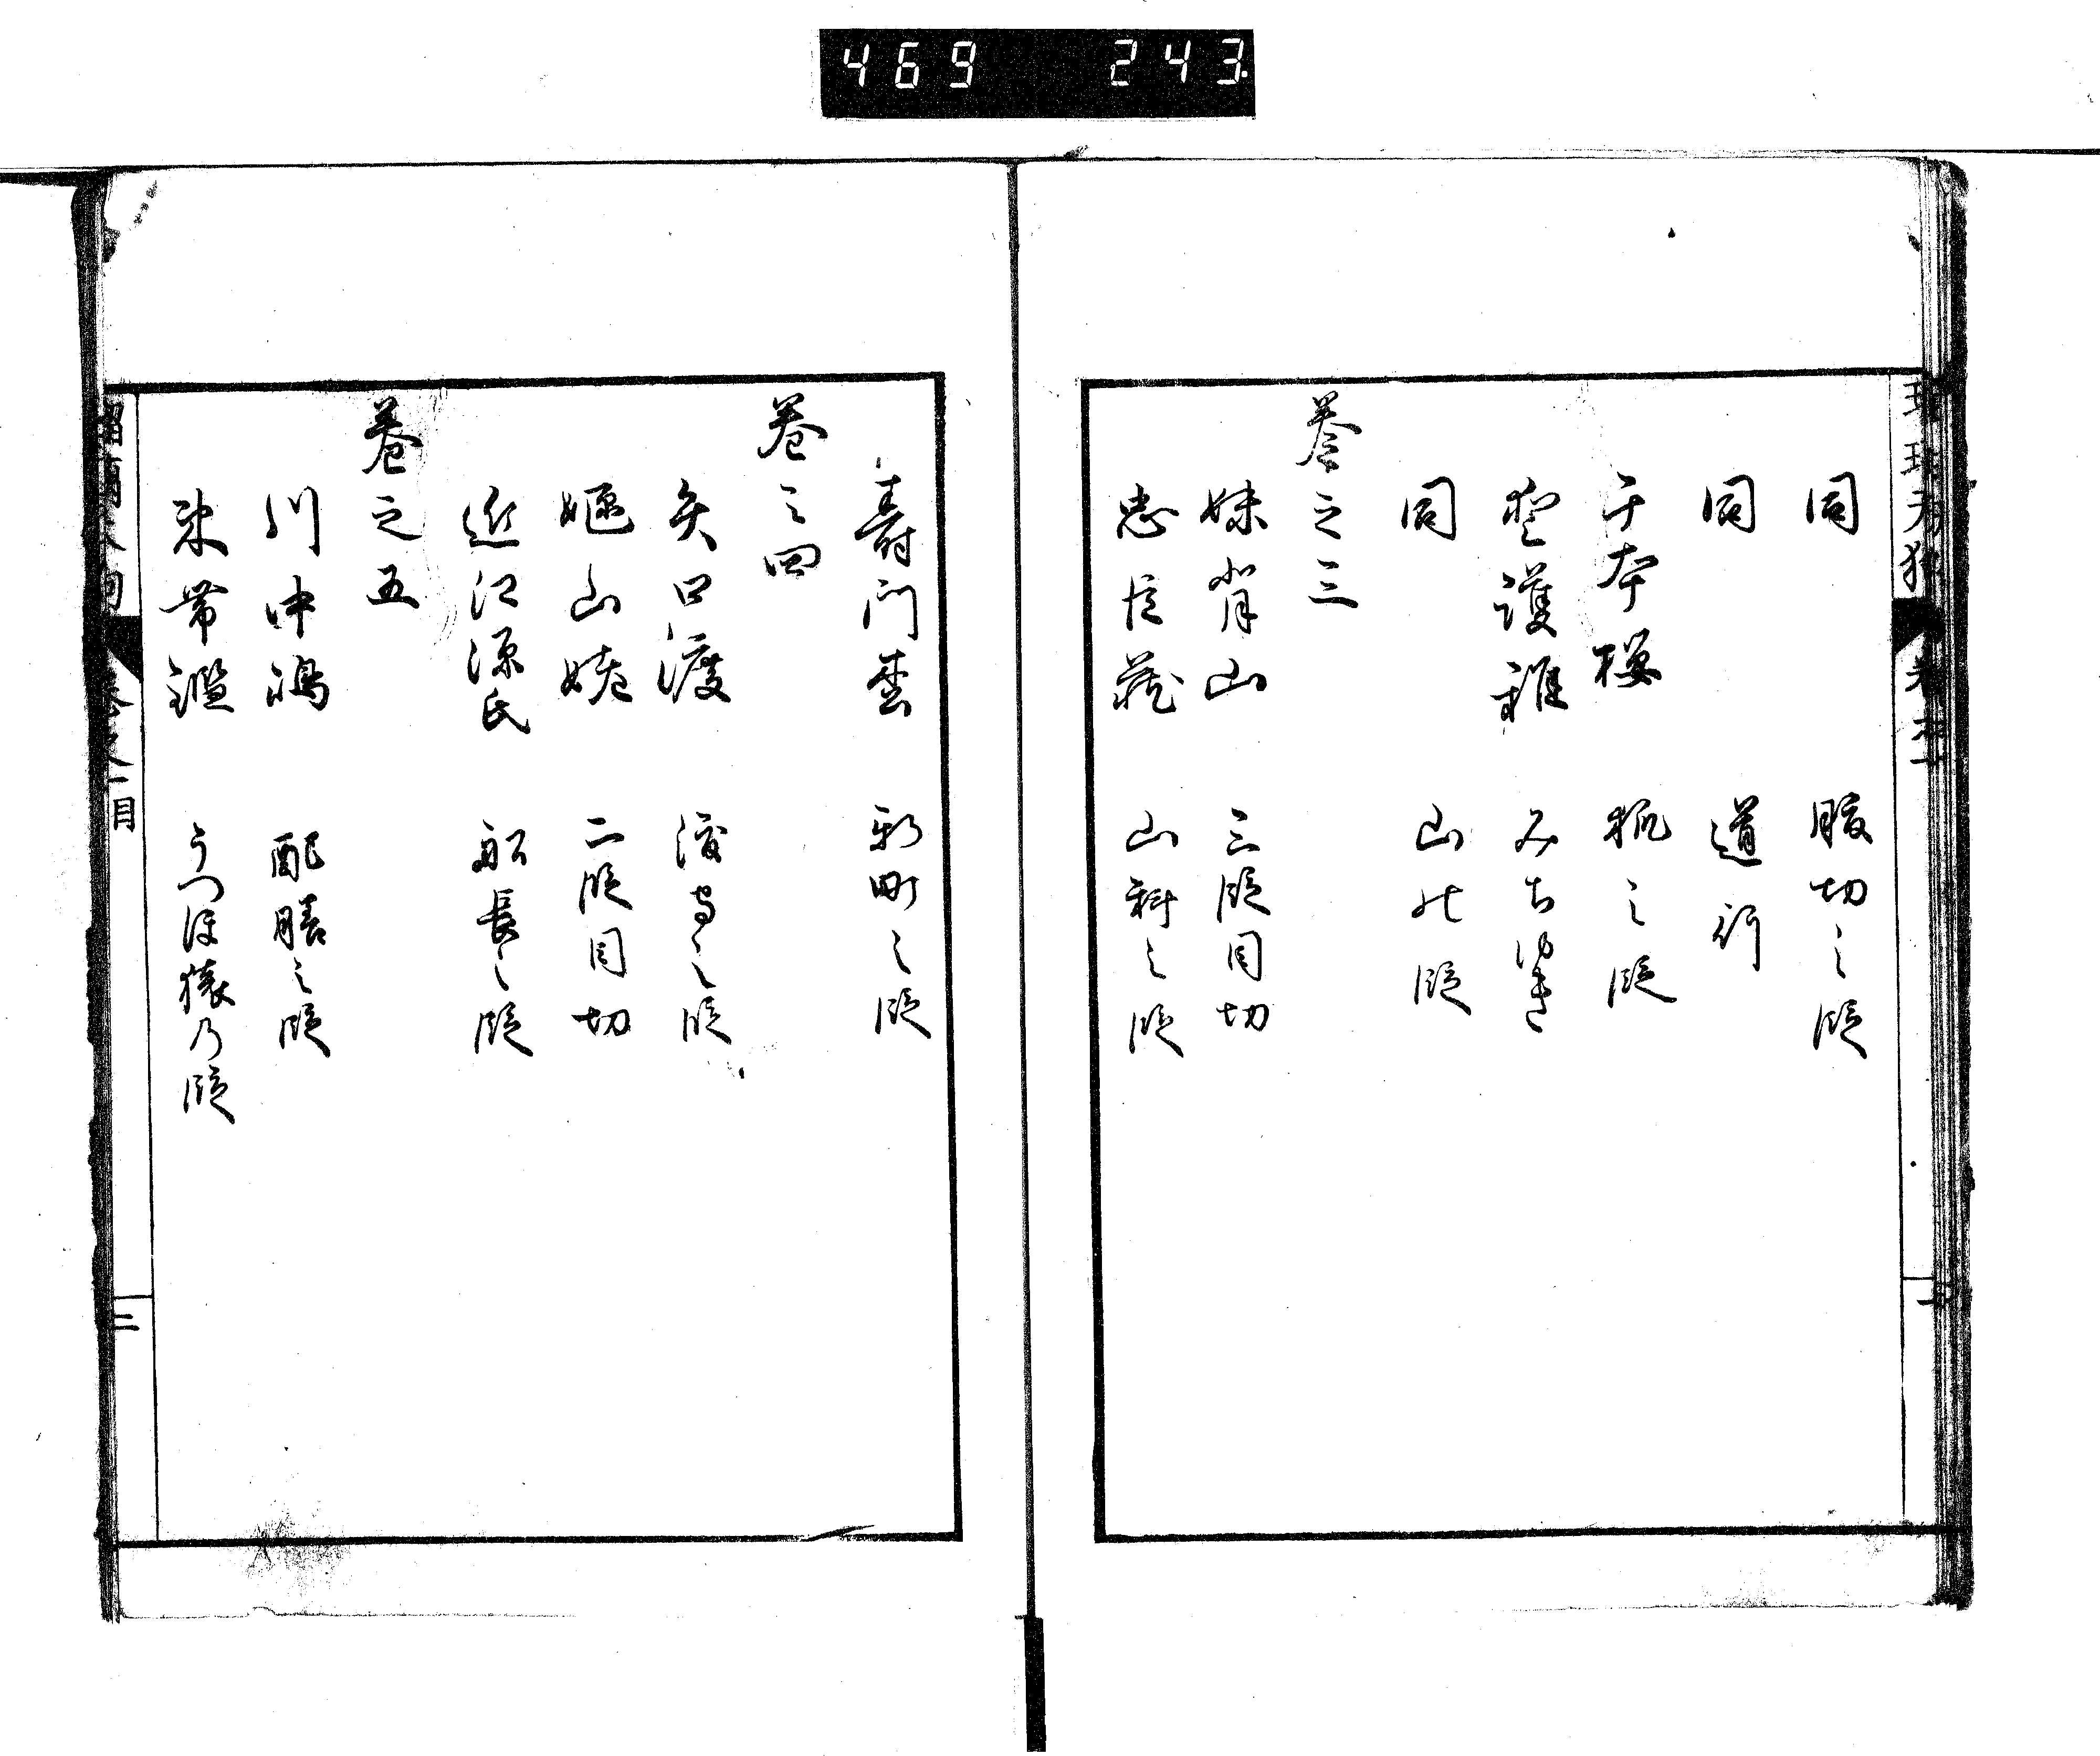 469 243
同 腹切之段
同 道行
千本桜 椎之段
壇護雛 みちゆき
同 山の段
巻之三
妹背山 三段目切
忠臣蔵 山科之段
寿門松 新町之段
巻之四
矢口渡 渡守之段
嫗山姥 二段目切
近江源氏 船長之段
巻之五
川中嶋 配膳之段
染帯鑑 うつほ猿乃段
巻之一目
二